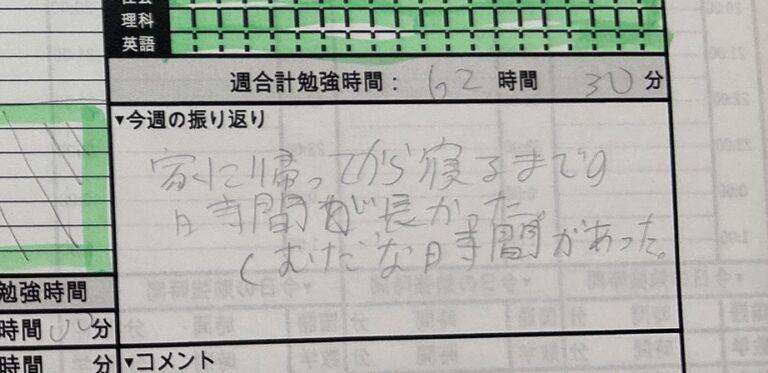 理科
英語
週合計勉強時間： 62 時間 30 分
▼今週の振り返り
家に帰ってから寝るまでの
時間が長かった
むだな時間があった。
勉強時間
時間 00 分
時間 分
▼コメント